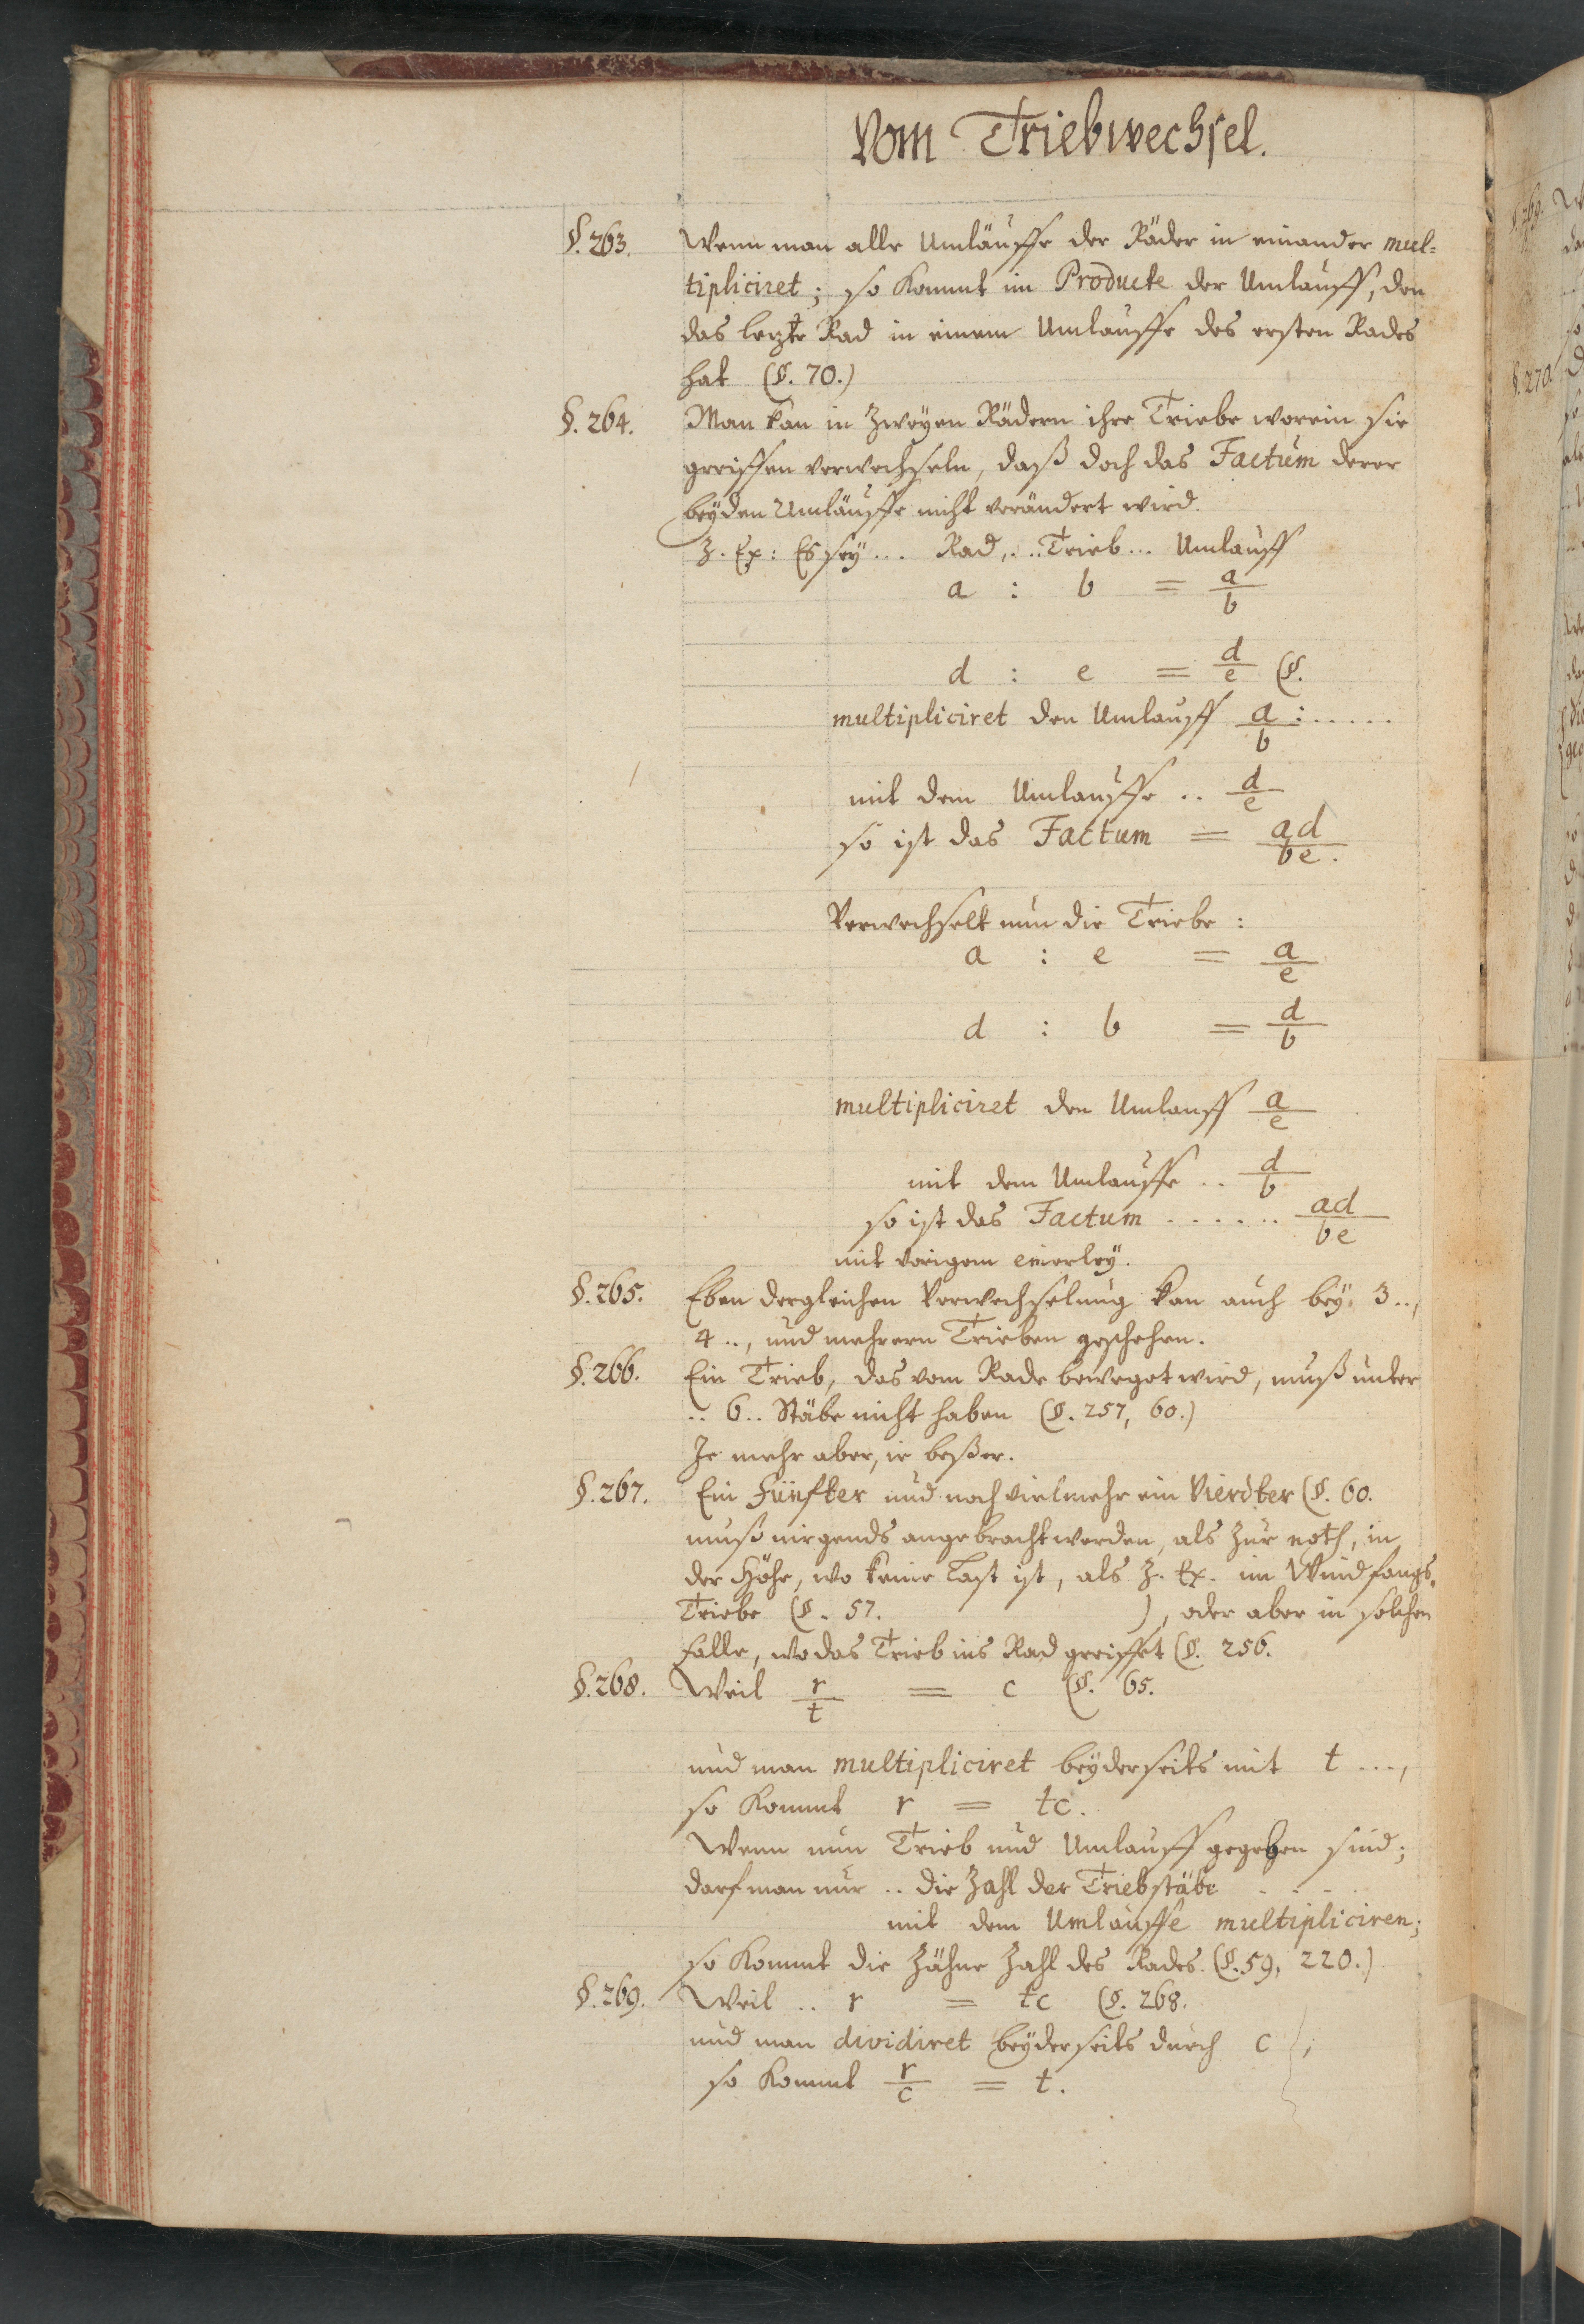 Vom Triebwechsel.
§. 263. Wenn man alle Umläuffe der Räder in einander mul=
tipliciret; so kommt im Producte der Umlauff, den
das lezte Rad in einem Umlauffe des ersten Rades
hat (§. 70.)
§. 264. Man kan in zweyen Rädern ihre Triebe worein sie
greiffen verwechseln, daß doch das Factum derer
beyden Umläuffe nicht verändert wird.
Z. Ex: Es seÿ... Rad,... Trieb... Umlauff
a : b = a/b
d : e = d/e (§.
multipliciret den Umlauff a/b : .....
mit dem Umlauffe .. d/e
so ist das Factum = ad/be.
Verwechselt nun die Triebe :
a : e = a/e
d : b = d/b
multipliciret den Umlauff a/e
mit dem Umlauffe .. d/b
so ist das Factum ...... ad/be
mit vorigem einerleÿ.
§. 265. Eben dergleichen Verwechselung kan auch beÿ 3..,
4.., und mehrern Trieben geschehen.
§. 266. Ein Trieb, das vom Rade beweget wird, muß unter
.. 6.. Stäbe nicht haben (§. 257, 60.)
Je mehr aber, ie beßer.
§. 267. Ein Fünfter und noch vielmehr ein Vierdter (§. 60.
muß nirgends angebracht werden, als zur noth, in
der Höhe, wo keine Last ist, als Z. Ex. im Windfangs=
Triebe (§. 57. ), oder aber in solchen
Falle, wo das Trieb ins Rad greiffet (§. 256.
§. 268. Weil r/t = c (§. 65.
und man multipliciret beÿderseits mit t ...,
so kommt r = tc.
Wenn nun Trieb und Umlauff gegeben sind;
darf man nur .. die Zahl der Triebstäbe . . .
mit dem Umlauffe multipliciren;
so kommt die Zähne Zahl des Rades. (§. 59, 220.)
§. 269. Weil .. r = tc (§. 268.
und man dividiret beÿderseits durch c ;
so kommt r/c = t.
§. 269.
§. 270.